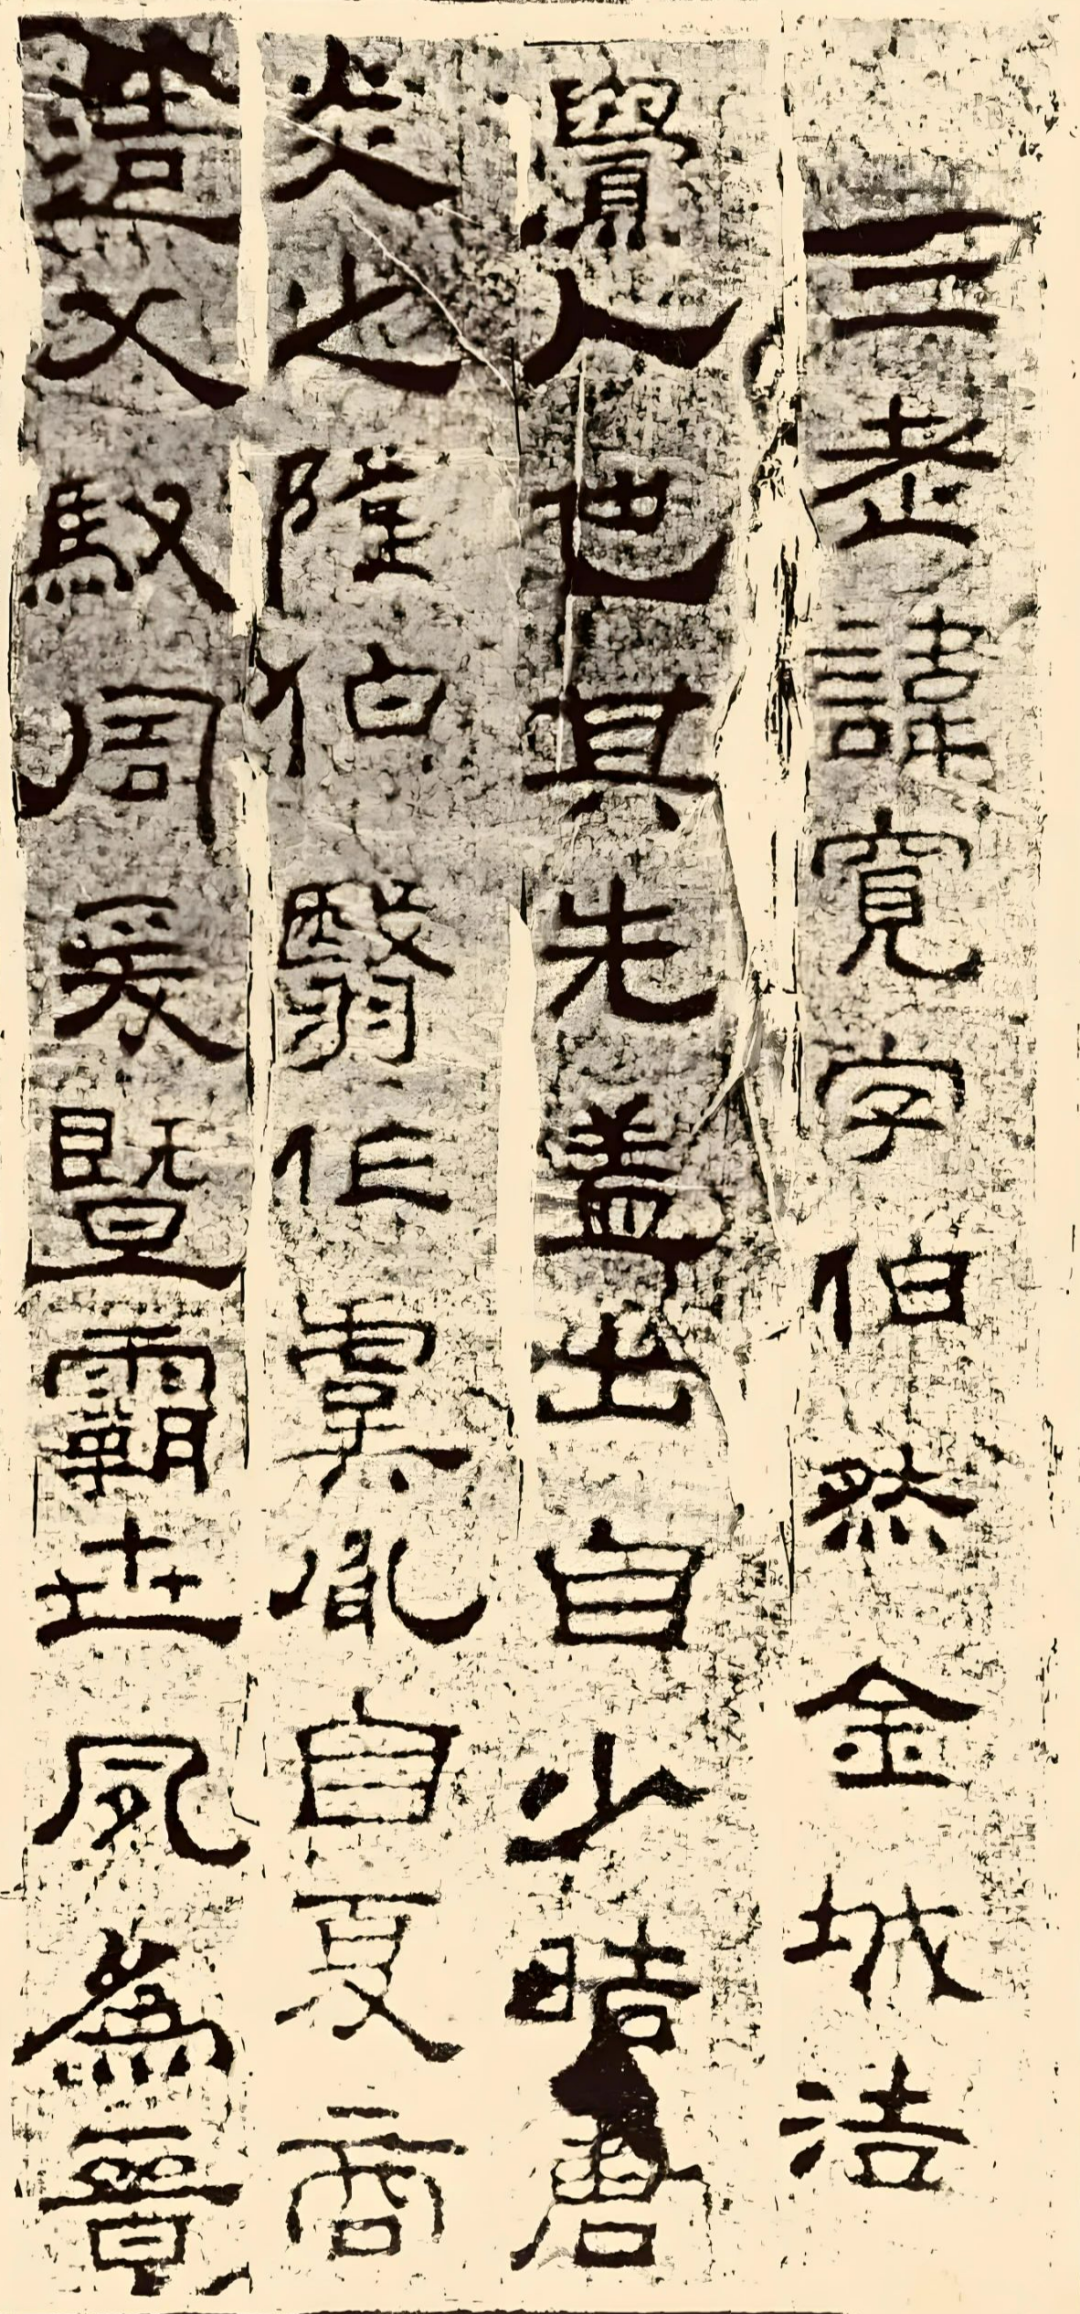 三老諱寬字伯然金城浩
亹人也其先盖出自少晧唐
炎之隆伯翳作虞胤自夏商
造父馭周爰暨霸世夙爲晉